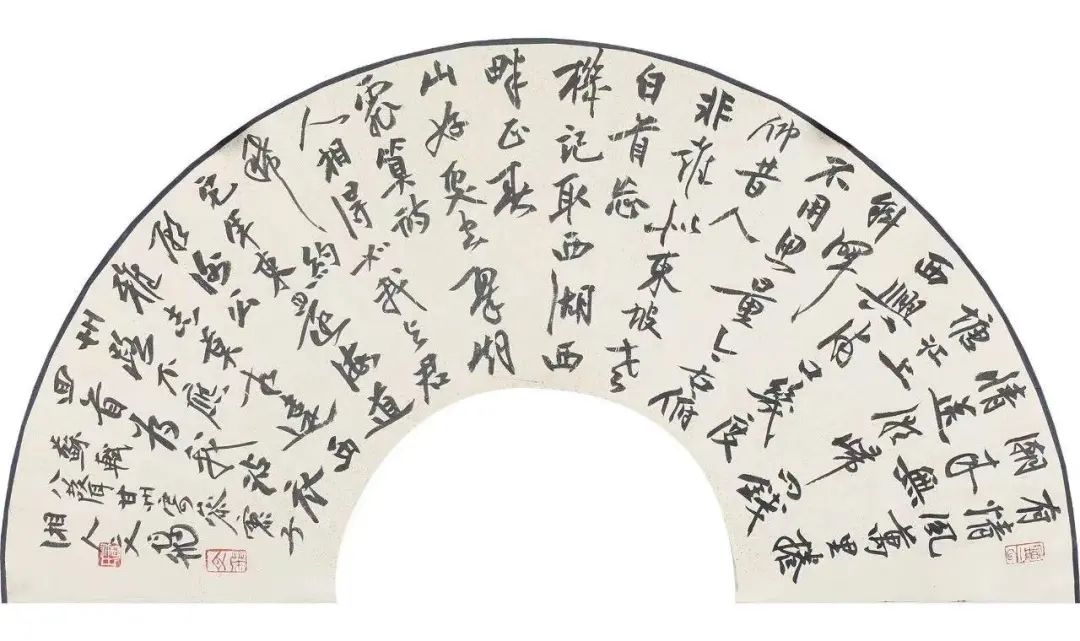 有情風萬里捲
潮來無
情送潮歸問錢
塘江上
西興浦口幾度
斜暉
不用思量今古俯
仰昔人
非誰似東坡老
白首忘
機記取西湖西
畔正暮
山好處空翠烟
霏算詩
人相得如我與君
稀約
它年東還海道
願謝公
雅志莫相違西
州路不應
回首為我沾衣
蘇軾
八聲甘州寄參寥子
湘人